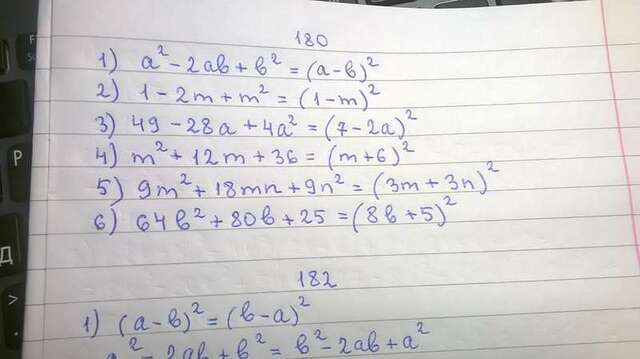 180
1) a² - 2ab + b² = (a-b)²
2) 1 - 2m + m² = (1-m)²
3) 49 - 28a + 4a² = (7-2a)²
4) m² + 12m + 36 = (m+6)²
5) 9m² + 18mn + 9n² = (3m+3n)²
6) 64b² + 80b + 25 = (8b+5)²
182
1) (a-b)² = (b-a)²
a² - 2ab + b² = b² - 2ab + a²
Р
Д
>